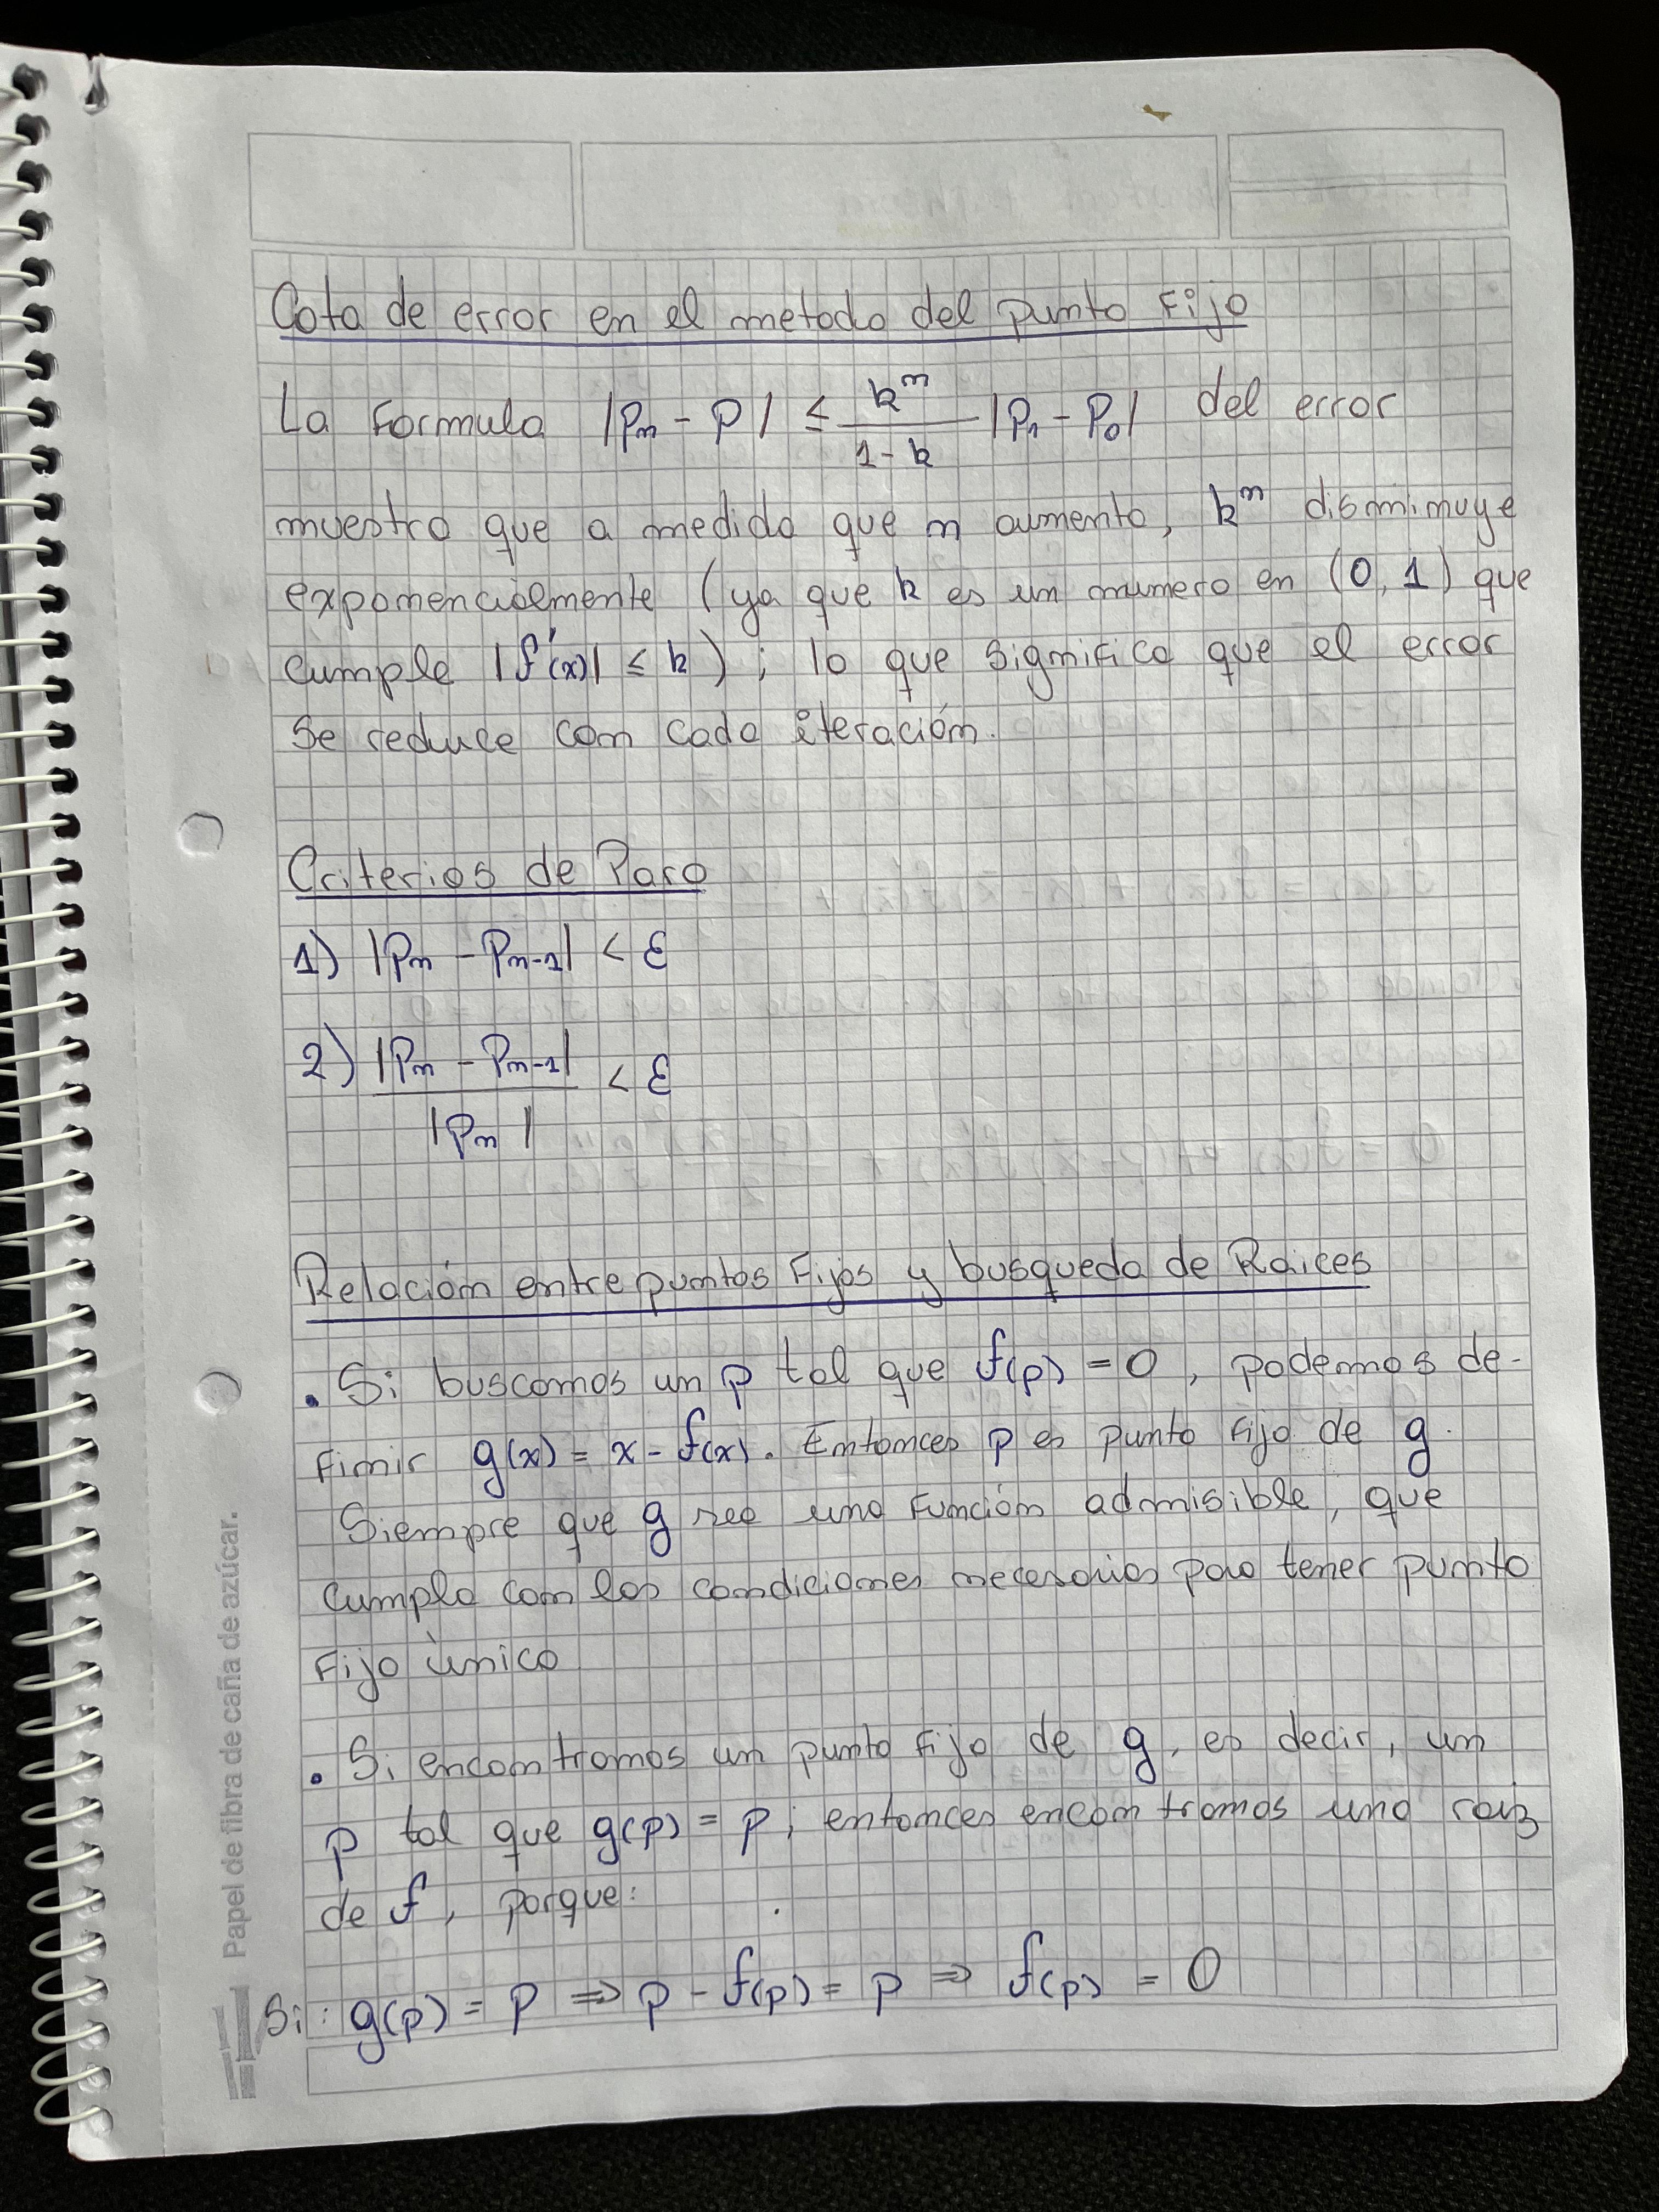 Cota de error en el metodo del punto Fijo
La Formula |Pn - P| ≤ k^n / (1 - k) |P1 - P0| del error
muestra que a medida que n aumenta, k^n disminuye
exponencialmente (ya que k es un numero en (0, 1) que
cumple |f'(x)| ≤ k) ; lo que significa que el error
se reduce con cada iteración.
Criterios de Paro
1) |Pn - Pn-1| < ε
2) |Pn - Pn-1| / |Pn| < ε
Relación entre puntos Fijos y busqueda de Raices
• Si buscamos un p tal que f(p) = 0, podemos de-
finir g(x) = x - f(x). Entonces p es punto fijo de g.
Siempre que g sea una función admisible, que
cumpla con las condiciones necesarias para tener punto
Fijo único
• Si encontramos un punto fijo de g, es decir, un
p tal que g(p) = p; entonces encontramos una raiz
de f, porque:
Si: g(p) = p ⇒ p - f(p) = p ⇒ f(p) = 0
Papel de fibra de caña de azúcar.